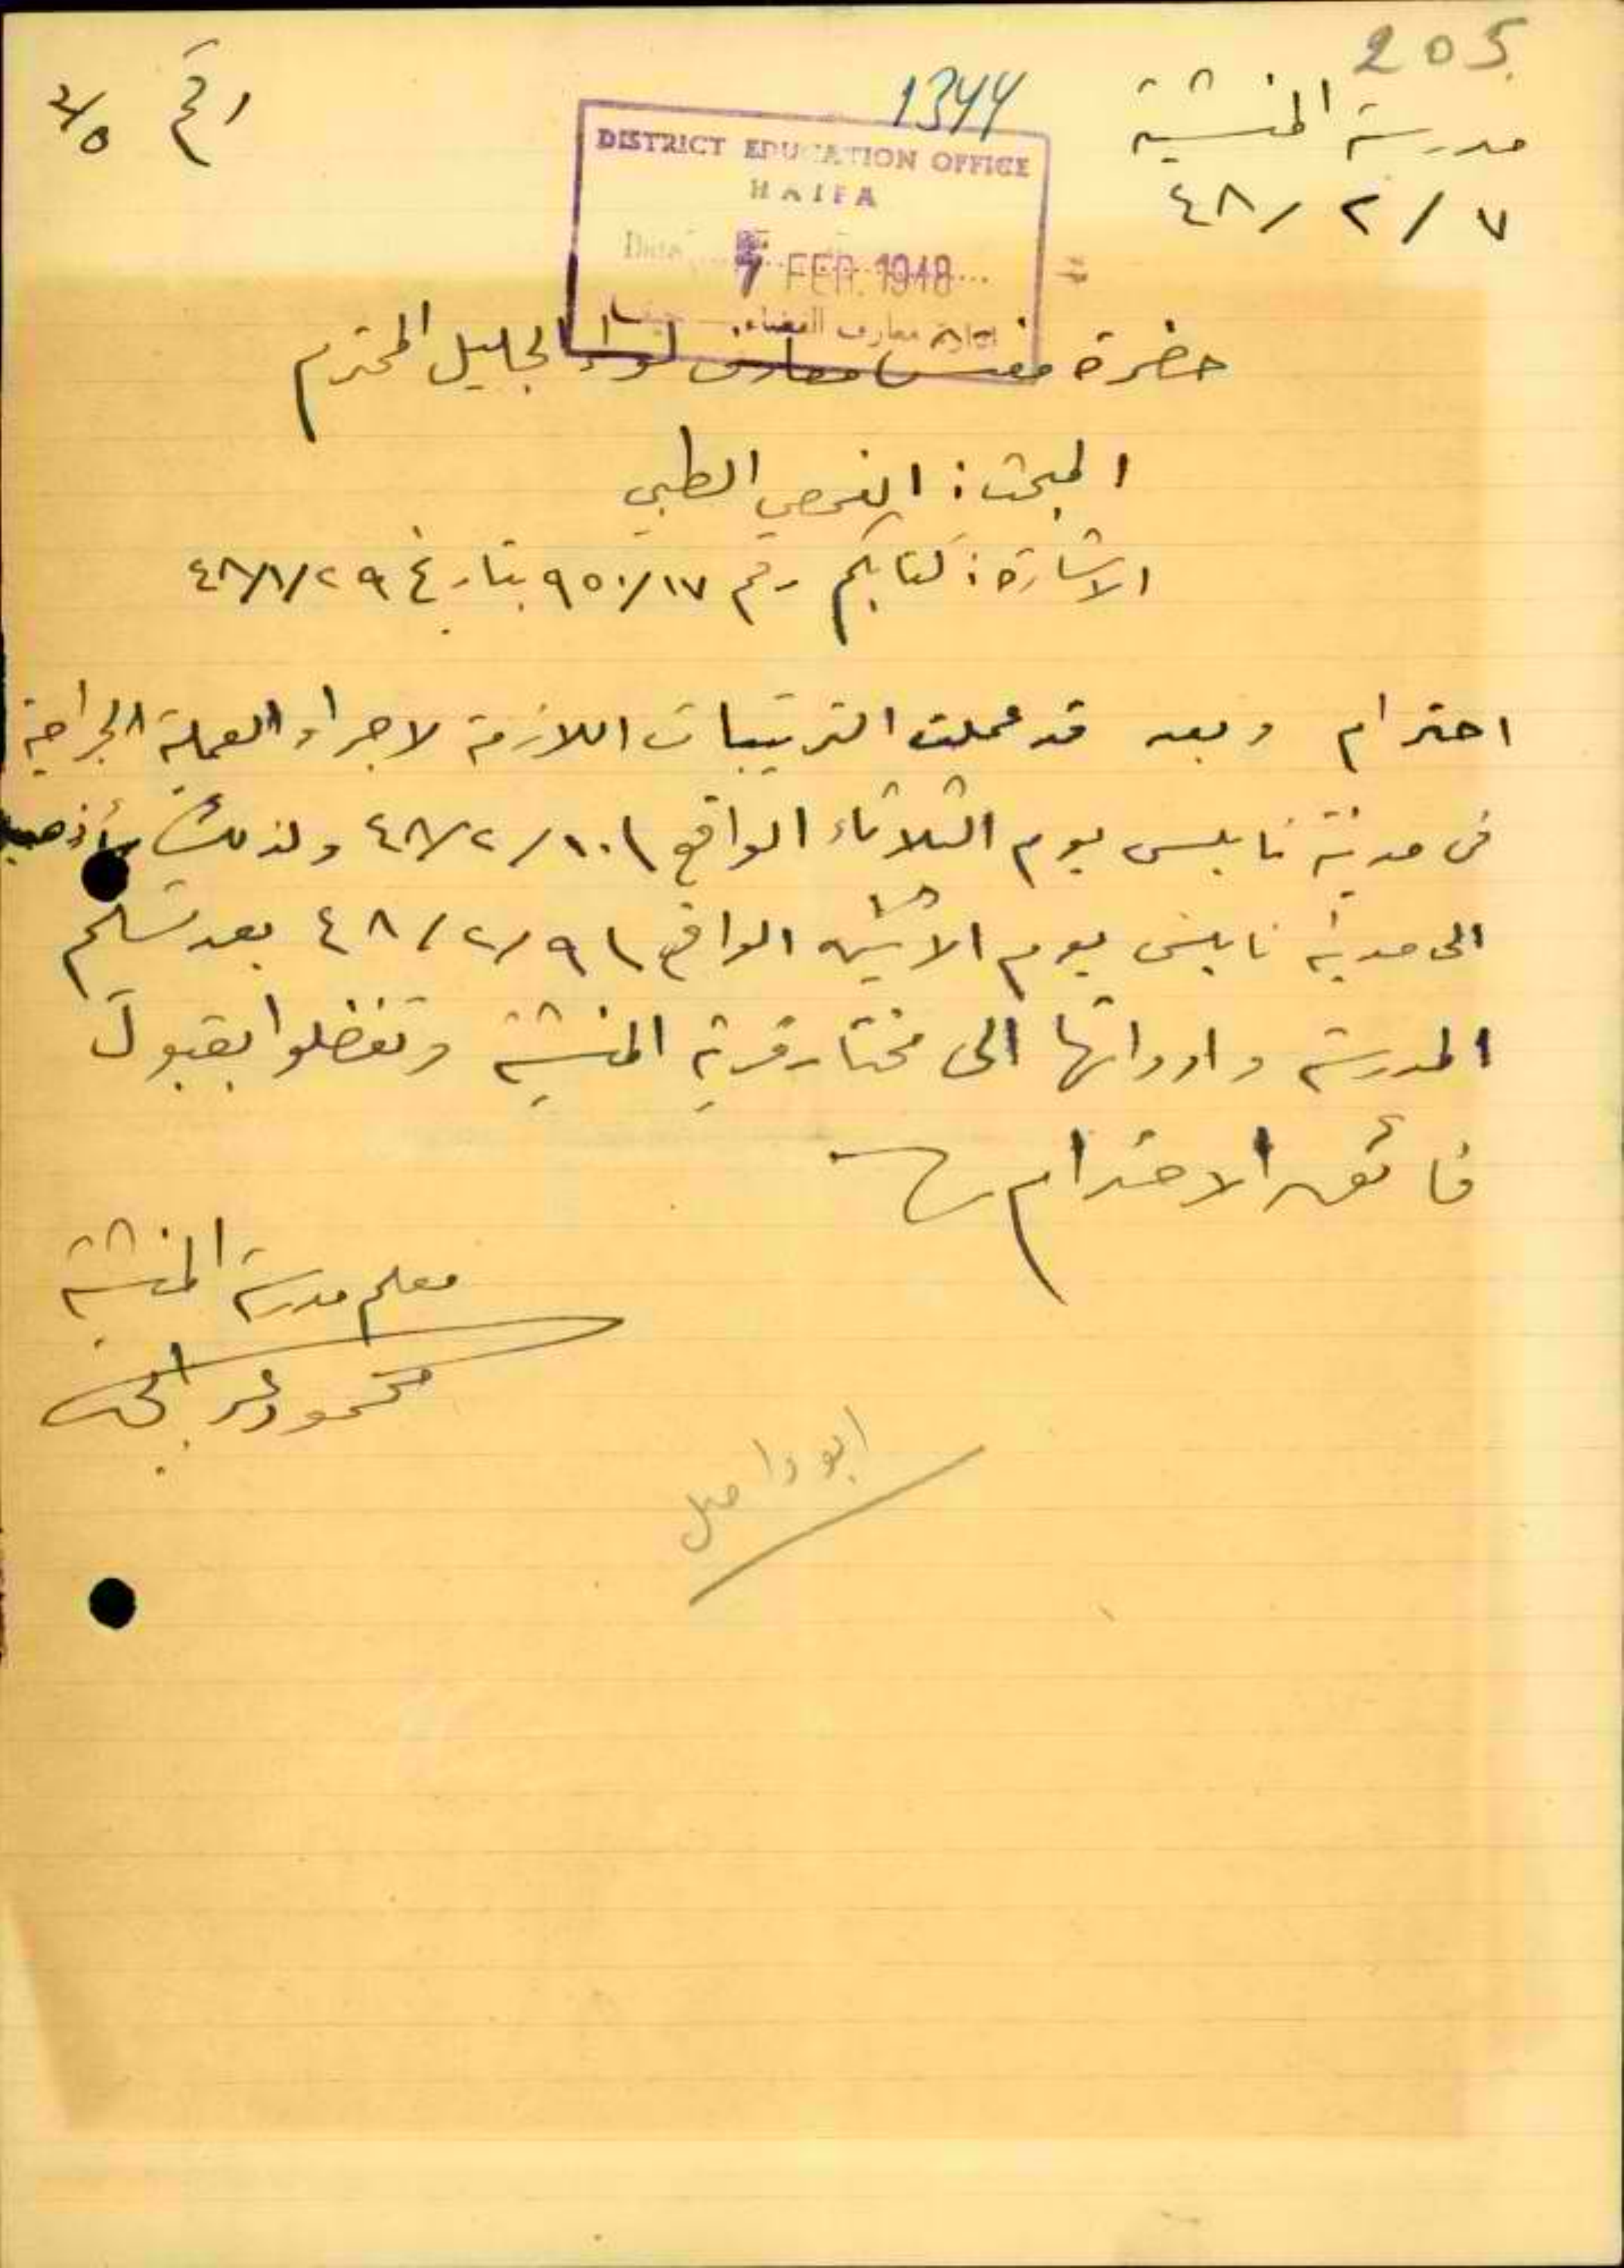 205
مدرسة المنشية
رقم ٢/٥
1344
٧ / ٢ / ٤٨
DISTRICT EDUCATION OFFICE
HAIFA
Date 7 FEB. 1948
ادارة معارف القضاء حيفا
حضرة مفتش معارف لواء الجليل المحترم
المبحث : الفحص الطبي
الاشارة : كتابكم رقم ٩٥٠/١٧ بتاريخ ٤٨/١/٢٩
احترام وبعد قد عملت الترتيبات اللازمة لاجراء العملية الجراحية
في مدينة نابلس يوم الثلاثاء الواقع ٤٨/٢/١٠ ولذلك سأذهب
الى مدينة نابلس يوم الاثنين الواقع ٤٨/٢/٩ بعد تسليم
المدرسة وادواتها الى مختار قرية المنشية وتفضلوا بقبول
فائق الاحترام
معلم مدرسة المنشية
محمود
ابو واصل